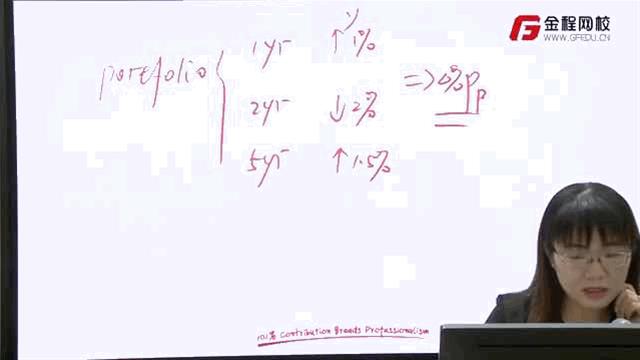 金程网校
WWW.GFEDU.CN
y
1yr ↑1%
portfolio
2yr ↓2%
⇒ Δ%Pp
5yr ↑1.5%
Contribution Breeds Professionalism